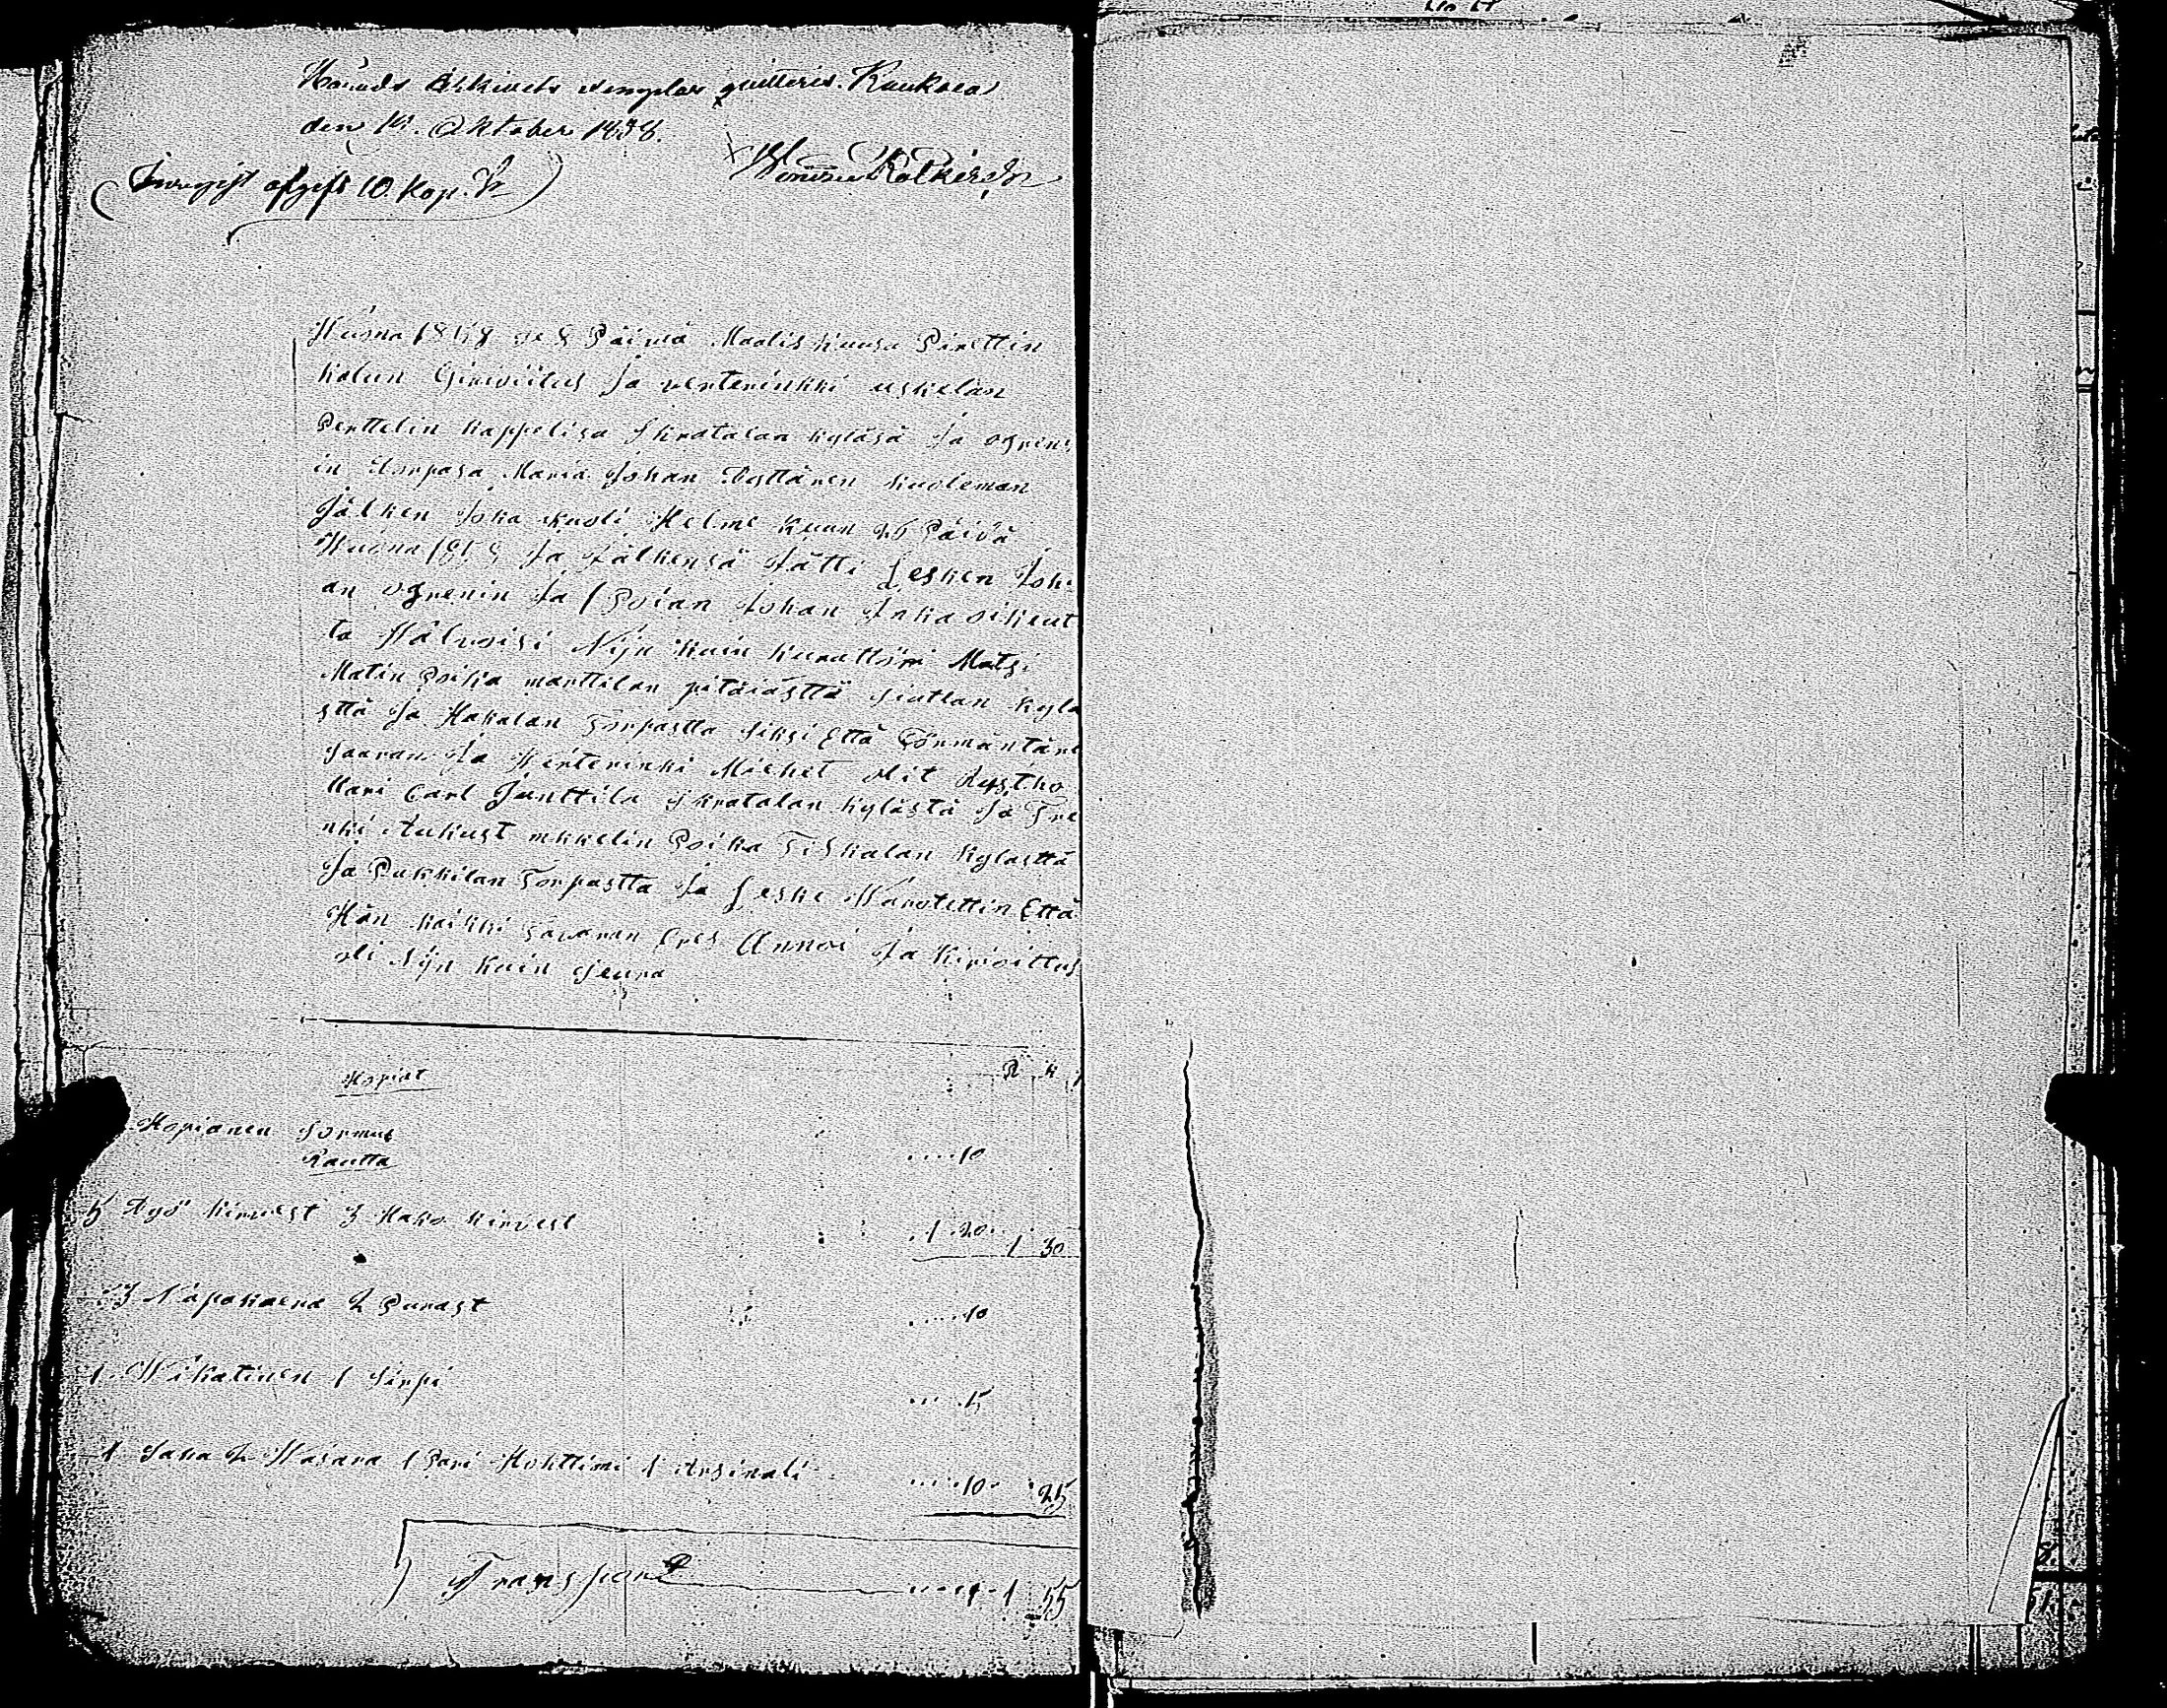 Härads Arkivets exemplar quitteras. Kuuksea
den 14. Oktober 1858.
afgift 10. Kop. Sr
Wuona 1858 ja 8 Päivä Maalis kuusa Pirettin
kalun Girioiitus ja verterinkki uskelan
Perttelin kappelisa Skratalan kyläsä Ja ogren
in Torpasa Maria Johan Tyttären kuoleman
Jälken Joka kuoli Helme kuun 26 Päivä
Wuona 1858 Ja Jälkensä Jätti Lesken Joh
an ogrenin Ja 1 Poian Johan Joka oikeut
ta Wälvoisi Nijn kuin kurattori Matsi
Matin Poika marttilan pitäiästtä Siutlan kylä
sttä Ja Hakalan Torpastta siksi Että Törmäntäre
Saaran Ja Werterinki Miehet olit Rysttho
llari Carl Junttila Skratalan kylästä Ja Tre
nki Aukust mkkelin Poika Tiskalan kylasttä
Ja Pukkilan Torpastta Ja Leske Warotettin Että
Hän kaikki Tavaran Ores Annoi Ja Kirioittus
oli Nijn kuin Seura
Hopiat R K
Hopianen Sormus 10
Rautta
5 Työ kirvest 3 Hako kirvest 1 20 1 30
3 Näpokaera 2 Purast 10
1 Wikatinen 1 Sirpi 15
1 Saha 2 Wasara 1 Pari Hohttimi 1 Arsinali 10 25
Transport 1 55